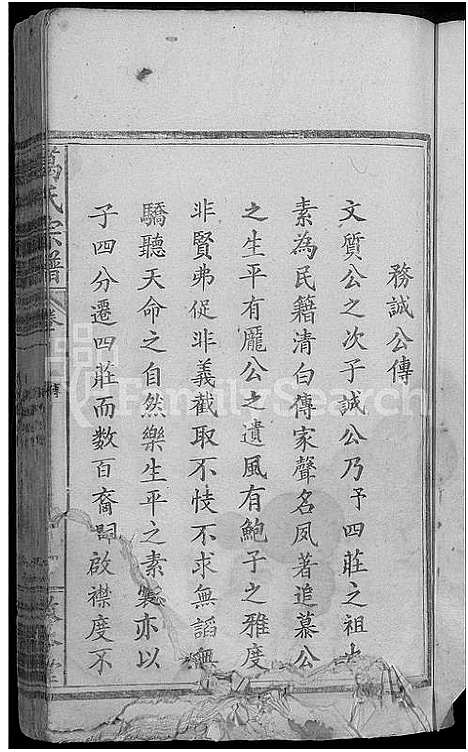 務誠公傳
文質公之次子誠公乃予四莊之祖也
素為民籍清白傳家聲名夙著追慕公
之生平有龐公之遺風有鮑子之雅度
非賢弗從非義截取不忮不求無諂無
驕聽天命之自然樂生平之素裳亦以
子四分遷四莊而数百裔啟襟度不
萬氏宗譜
卷
傳
FamilySearch